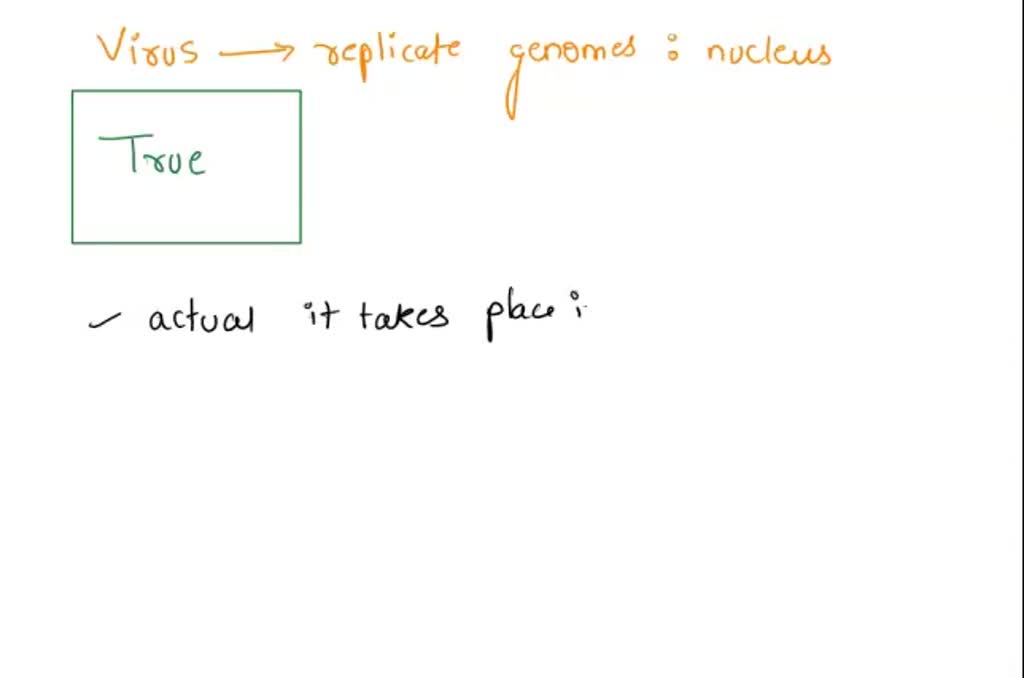 Virus → replicate genomes : nucleus
True
✓ actual it takes place i